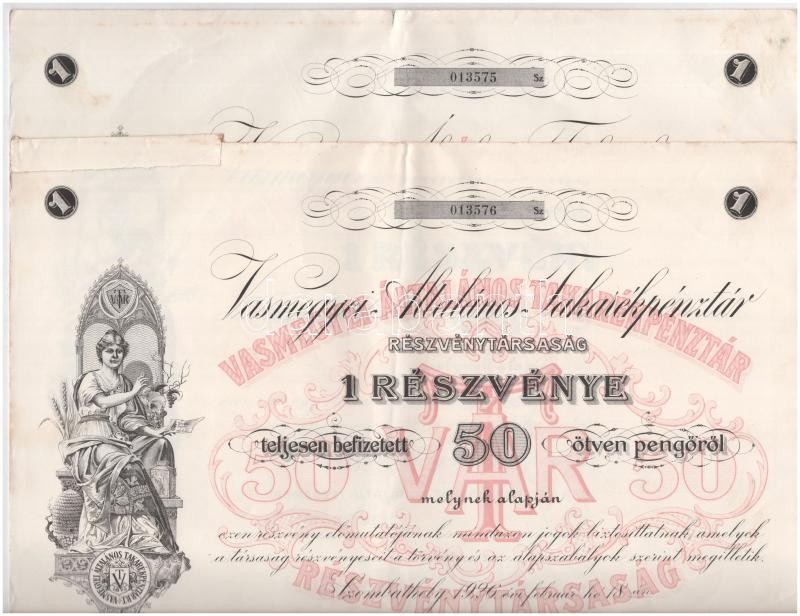 1
013575 Sz
1
1
013576 Sz
1
Vasmegyei Általános Takarékpénztár
VASMEGYEI ÁLTALÁNOS TAKARÉKPÉNZTÁR
RÉSZVÉNYTÁRSASÁG
1 RÉSZVÉNYE
teljesen befizetett 50 ötven pengőről
50 VÁTR 50
melynek alapján
ezen részvény előmutatójának mindazon jogok biztosíttatnak, amelyek
a társaság részvényeseit a törvény és az alapszabályok szerint megilletik.
RÉSZVÉNYTÁRSASÁG
Szombathely, 1926 évi február hó 18-án